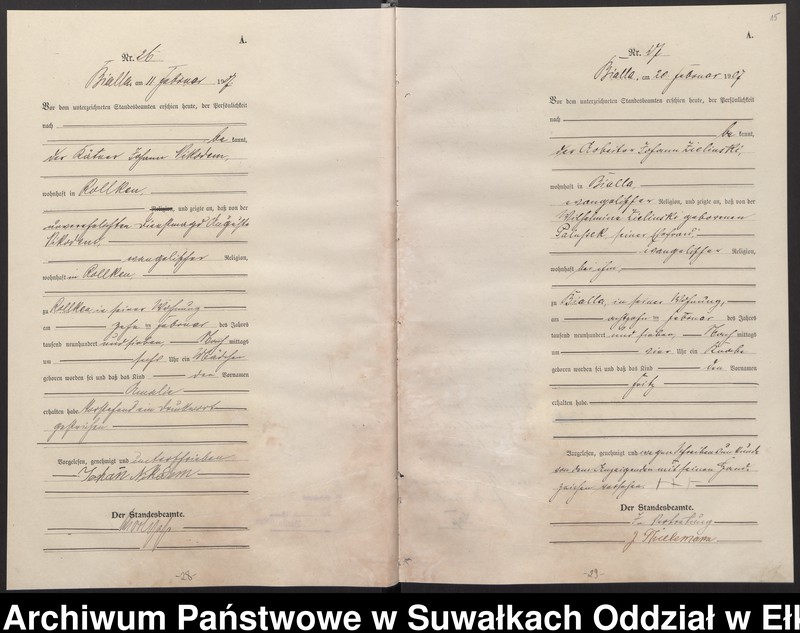 A.
Nr. 26
Bialla, am 11 Februar 1907
Vor dem unterzeichneten Standesbeamten erschien heute, der Persönlichkeit
nach
be kannt,
der Kätner Johann Nikodem,
wohnhaft in Rollken
Religion, und zeigte an, daß von der
unverehelichten Dienstmagd Auguste
Nikodem,
evangelischer Religion,
wohnhaft in Rollken
zu Rollken in seiner Wohnung
am zehn ten Februar des Jahres
tausend neunhundert und sieben, Nach mittags
um sechs Uhr ein Mädchen
geboren worden sei und daß das Kind den Vornamen
Amalie
erhalten habe. Vorstehend ein Druckwort
gestrichen.
Vorgelesen, genehmigt und unterschrieben
Johann Nikodem
Der Standesbeamte.
-28-
85
A.
Nr. 27
Bialla, am 20 Februar 1907
Vor dem unterzeichneten Standesbeamten erschien heute, der Persönlichkeit
nach
be kannt,
der Arbeiter Johann Zielinski,
wohnhaft in Bialla
evangelischer Religion, und zeigte an, daß von der
Wilhelmine Zielinski geborenen
seiner Ehefrau
evangelischer Religion,
wohnhaft bei ihm
zu Bialla, in seiner Wohnung,
am achtzehn ten Februar des Jahres
tausend neunhundert und sieben, Nach mittags
um vier Uhr ein Knabe
geboren worden sei und daß das Kind den Vornamen
Fritz
erhalten habe.
Vorgelesen, genehmigt und wegen Schreibensunkunde
von dem Anzeigenden mit seinem Hand-
zeichen versehen + + +
Der Standesbeamte.
In Vertretung
-29-
Archiwum Państwowe w Suwałkach Oddział w Ełk